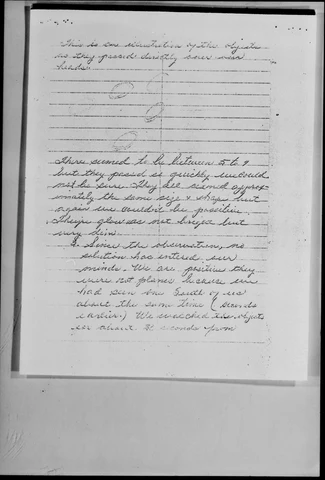 This is an illustration of the objects
as they passed directly over our
heads.
There seemed to be between 5 to 9
but they passed so quickly we could
not be sure. They all seemed approx-
imately the same size & shape but
again we couldn't be positive.
Their glow was not bright but
very dim.
Since the observation, no
solution has entered our
minds. We are positive they
were not planes because we
had seen one South of us
about the same time (seconds
earlier.) We watched the objects
for about 12 seconds from